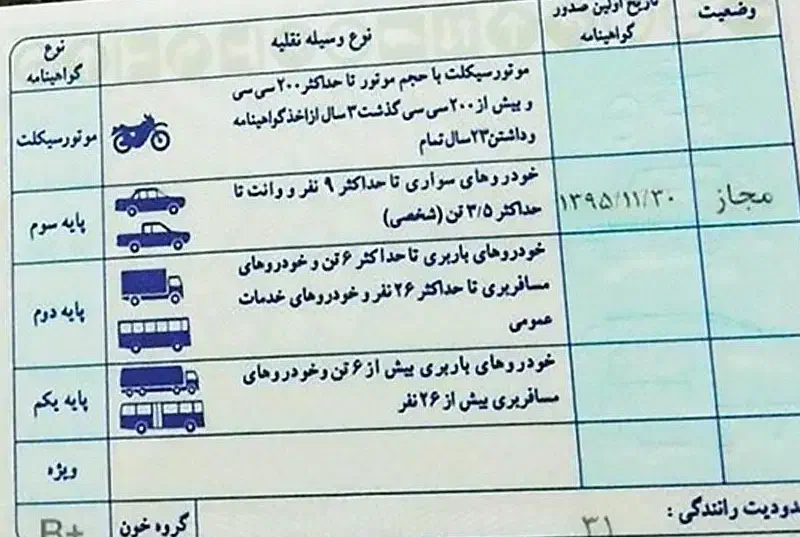 وضعیت
تاریخ اولین صدور
گواهینامه
نوع وسیله نقلیه
نوع
گواهینامه
موتورسیکلت با حجم موتور تا حداکثر ۲۰۰ سی سی
و بیش از ۲۰۰ سی سی گذشت ۳ سال ازاخذ گواهینامه
وداشتن ۲۳ سال تمام
موتورسیکلت
مجاز
۱۳۹۵/۱۱/۳۰
خودروهای سواری تا حداکثر ۹ نفر و وانت تا
حداکثر ۳/۵ تن (شخصی)
پایه سوم
خودروهای باربری تا حداکثر ۶ تن و خودروهای
مسافربری تا حداکثر ۲۶ نفر و خودروهای خدمات
عمومی
پایه دوم
خودروهای باربری بیش از ۶ تن وخودروهای
مسافربری بیش از ۲۶ نفر
پایه یکم
ویژه
رانندگی :
۳۱
گروه خون
B+